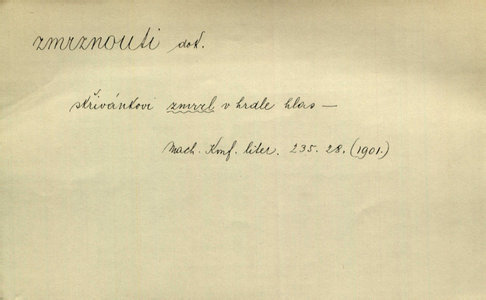 zmrznouti dok.
skřivánkovi zmrzl v hrdle hlas —
Mach. Konf. liter. 235. 28. (1901.)